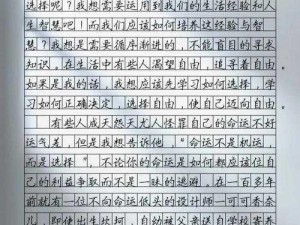 选择呢？我想需要运用到我们的生活经验和人
生智慧吧！而我们应该如何培养这经验与智
慧？我想是需要循序渐进的，不能盲目的寻求
知识，在生活中有些人渴望自由，选择自由。
如果是我的话，我想应该是学习如何选择，学
习如何正确决定，选择自由，使自己迈向自由。
有些人成天怨天尤人怪罪自己的命运不好
运气差，但是我想告诉他，“命运不是机运，
而是选择”，不论你的命运是如何都应该往自
己的利益争取而不是一昧的逃避。在一百多年
前就有一位不向命运低头的设计师一可可香奈
儿，即使出生坎坷，自幼被父亲送自学校寄养